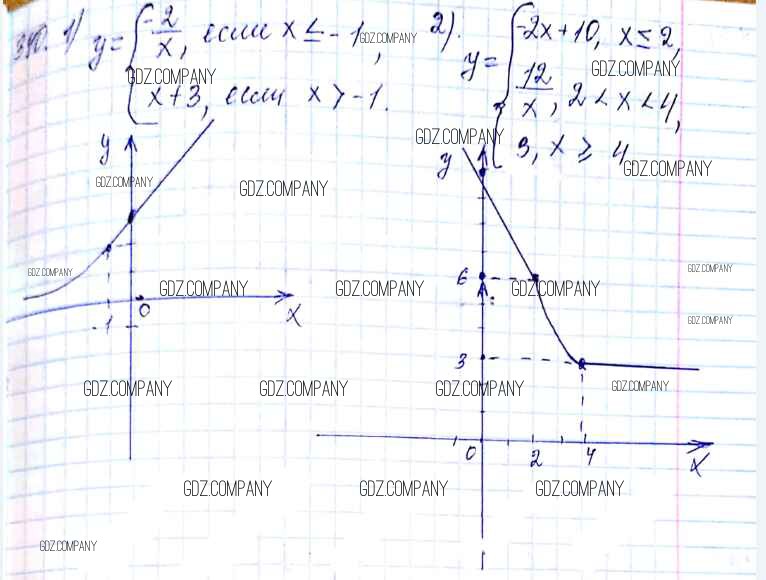 340. 1) y = { -2/x, если x ≤ -1,
x+3, если x > -1.
2). y = { -2x+10, x ≤ 2,
12/x, 2 < x < 4,
3, x ≥ 4
GDZ.COMPANY
GDZ.COMPANY
GDZ.COMPANY
GDZ.COMPANY
GDZ.COMPANY
GDZ.COMPANY
GDZ.COMPANY
y
-1
0
x
y
6
3
0
2
4
x
GDZ.COMPANY
GDZ.COMPANY GDZ.COMPANY GDZ.COMPANY GDZ.COMPANY
GDZ.COMPANY
GDZ.COMPANY GDZ.COMPANY GDZ.COMPANY GDZ.COMPANY
GDZ.COMPANY GDZ.COMPANY GDZ.COMPANY
GDZ.COMPANY